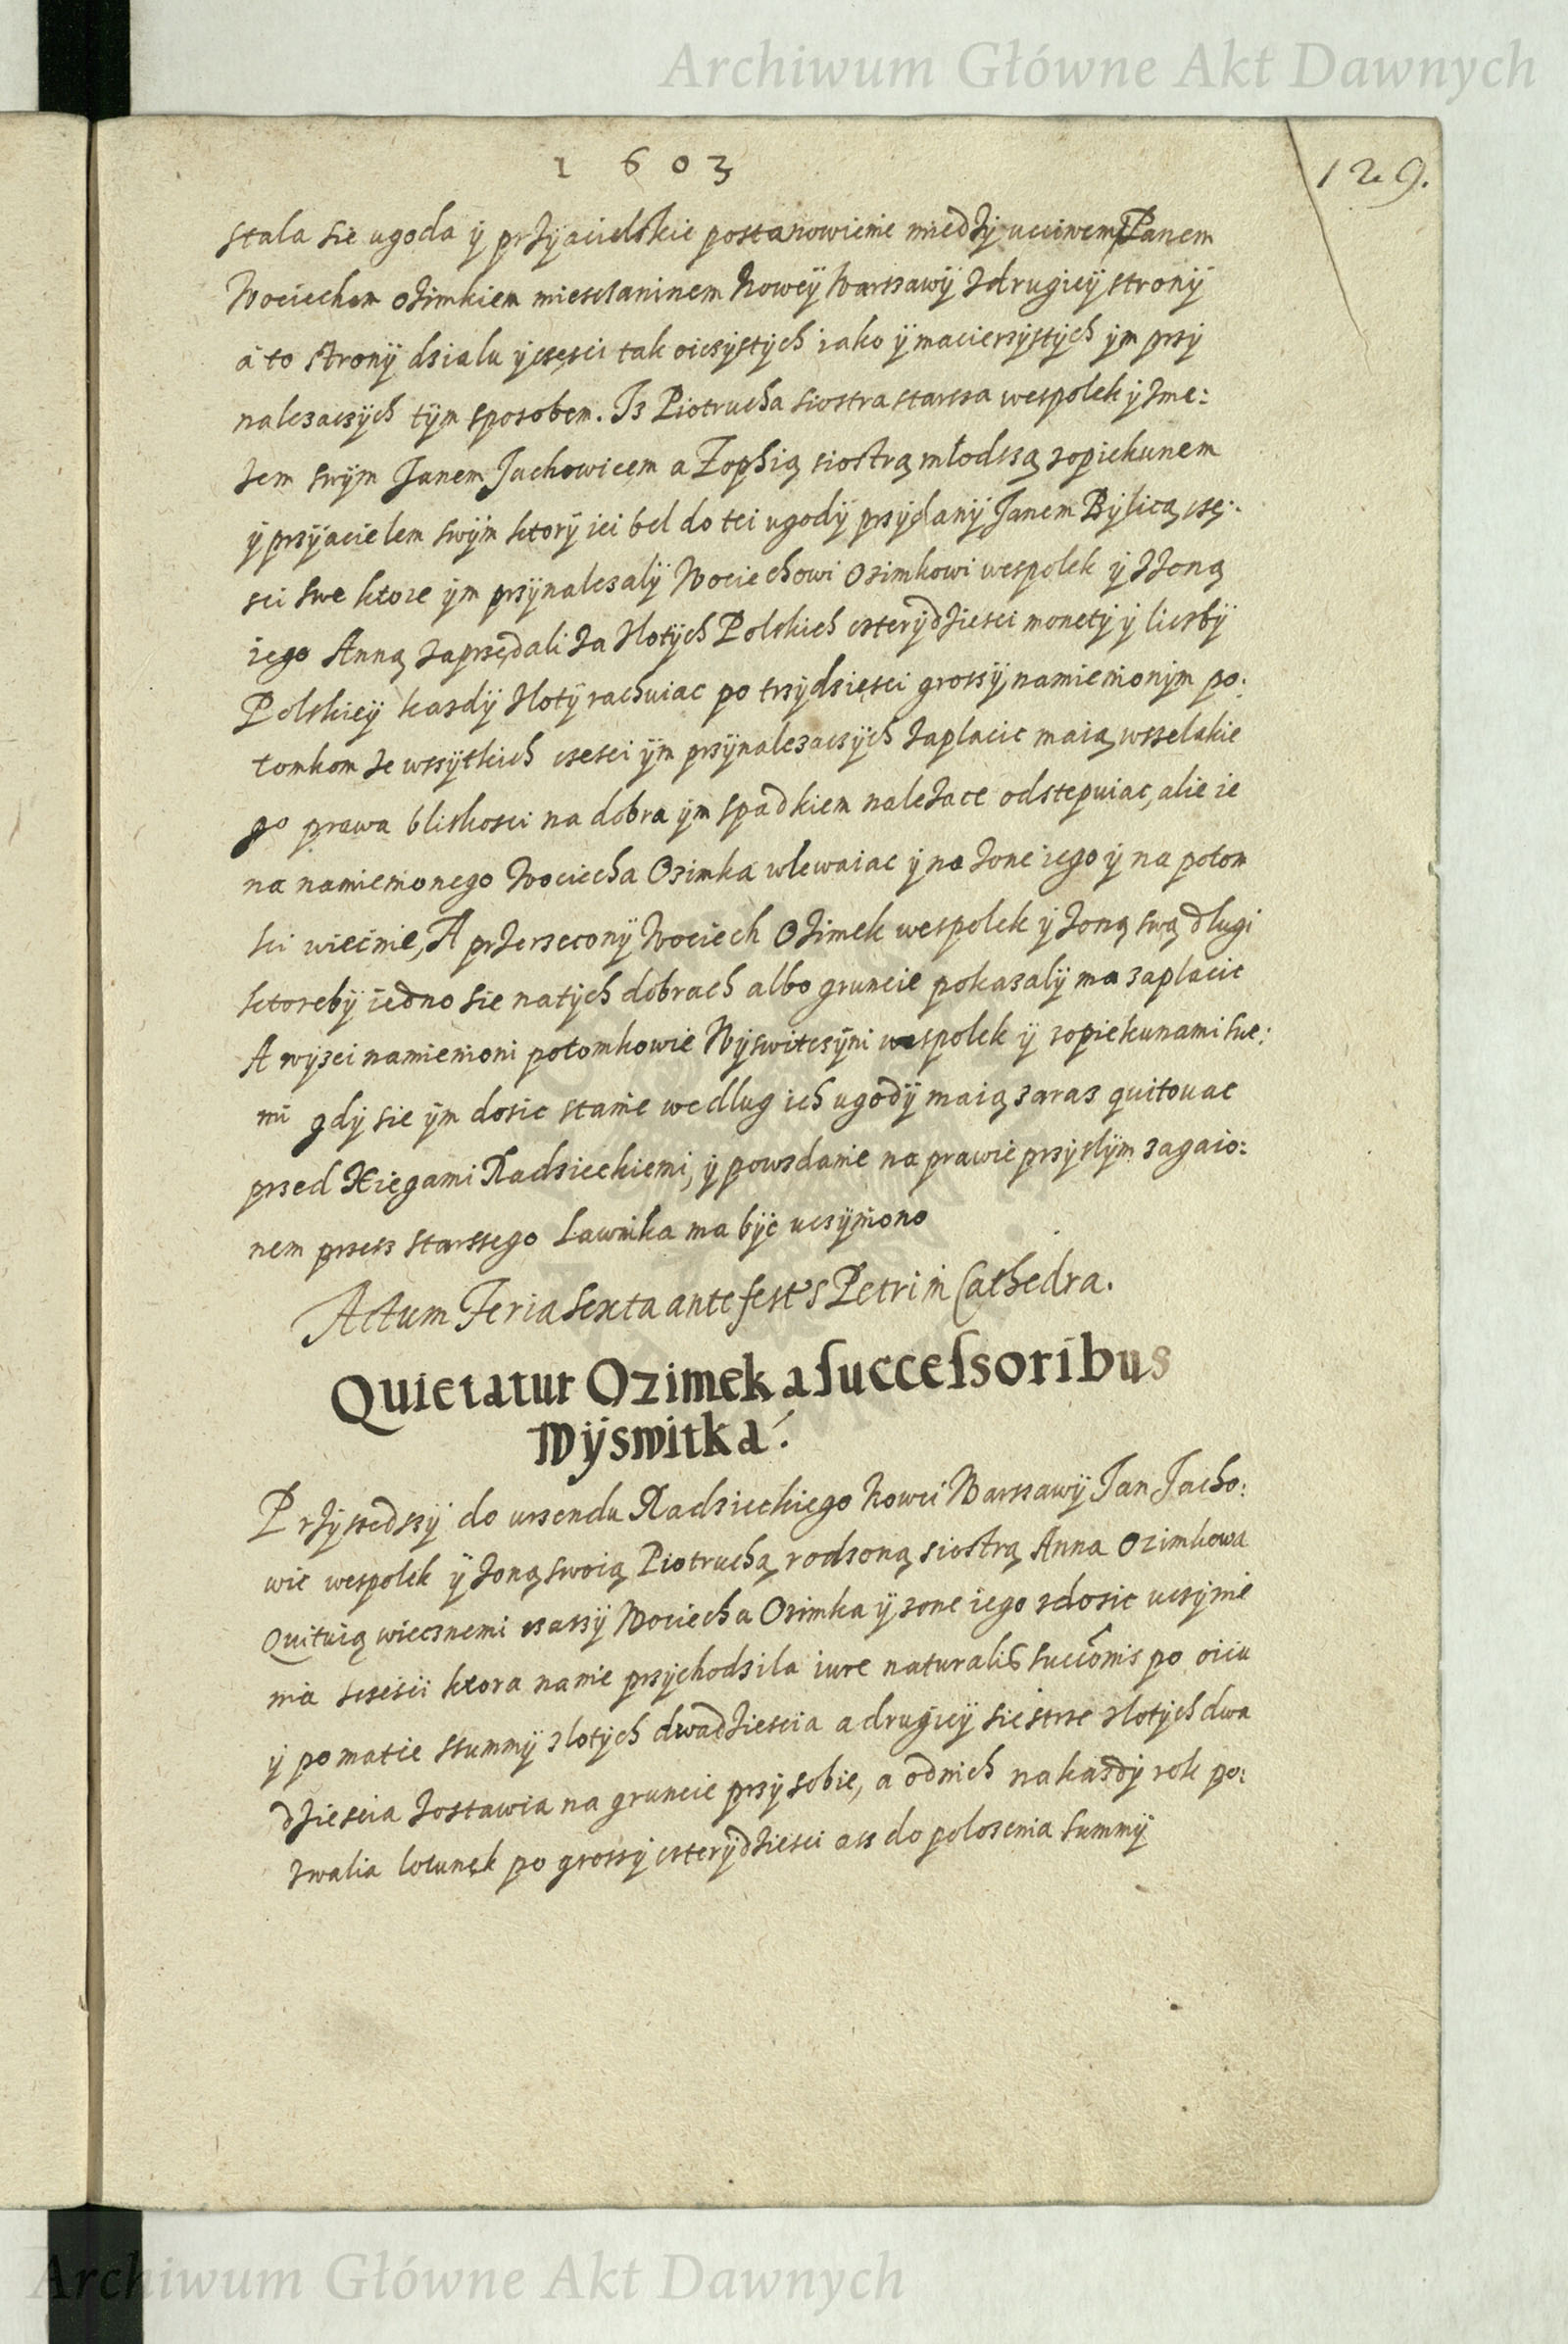 Archiwum Główne Akt Dawnych
1603
129.
stala sie ugoda ÿ przÿacielskie postanowienie miedzÿ ucciwem Panem
Wociechem Ozimkiem miesczaninem Nowеÿ Warssawÿ zdrugieÿ stronÿ
a to stronÿ dsialu ÿ csęsci tak oicsÿstÿch iako ÿ maciersÿstÿch ÿm prsÿ
nalezacsÿch tÿm sposobem. Is Piotrucha siostra starssa wespolek ÿ zme:
zem swÿm Janem Jachowicem a Zophią siostrą młodssą zopiekunem
ÿ prsÿacielem swÿm ktorÿ iei bel do tei ugodÿ prsÿdanÿ Janem Bÿlicą csę:
sci swe ktore ÿm prsÿnalezalÿ Wociechowi Ozimkowi wespolek ÿ zżoną
iego Anną zaprsedali za zlotÿch Polskich csterÿdziesci monetÿ ÿ licsbÿ
Polskieÿ kazdÿ zlotÿ rachuiac po trsÿdsiesci grossÿ, namienionÿm po:
tomkom ze wssÿtkich csesci ÿm prsÿnalezacsÿch zaplacic maią, wsselakie
go prawa bliskosci na dobra ÿm spadkiem należace odstepuiac, alie ie
na namienionego Wociecha Ozimka wlewaiac ÿ na żone iego ÿ na potom
ki wiecnie, A przersеconÿ Wociech Ozimek wespolek ÿ żoną swą długi
ktorebÿ iedno sie na tÿch dobrach albo gruncie pokazalÿ ma zaplacic
A wÿzei namienioni potomkowie Wÿswitcsÿni wespolek ÿ zopiekunami swe:
mi gdÿ sie ÿm dosic stanie wedlug ich ugodÿ maią zaraz quitouac
prsed Xięgami Radsieckiemi, ÿ powzdanie na prawie prsÿslÿm zagaio:
nem prsess starssego Lawnika ma bÿc ucsÿniono
Actum Feria sexta ante fest S Petri in Cathedra.
Quietatur Ozimek a successoribus
Wÿswitka.
Przÿssedssÿ do ursendu Radsieckiego Nowei Warssawÿ Jan Jacho:
wic wespolek ÿ żoną swoią Piotruchą, rodzoną siostrą Anna Ozimkowa
Quituią wiecsnemi csassÿ Wociecha Ozimka ÿ zone iego zdosic ucsÿnie
nia scsesci ktora na nie prsÿchodsila iure naturalis succonis po oicu
ÿ po matce summÿ zlotÿch dwadziescia a drugieÿ siestrse zlotÿch dwa
dziescia zostawia na gruncie prsÿ sobie, a odnich na kazdÿ rok po:
zwalia lotunek po grossÿ csterÿdziesci ass do polozenia summÿ
Archiwum Główne Akt Dawnych